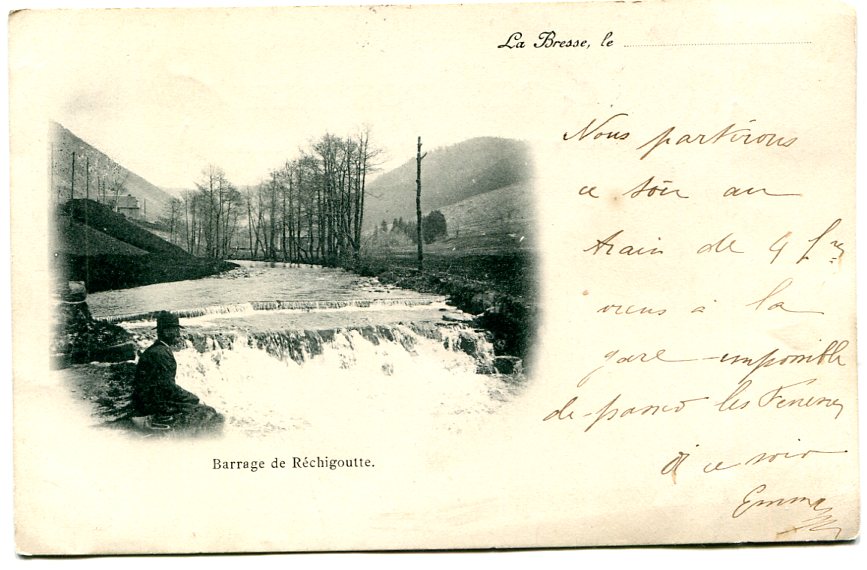 La Bresse, le
Nous partirons
ce soir au
train de 4
viens à la
gare impossible
de les
à ce soir
Emma
Barrage de Réchigoutte.